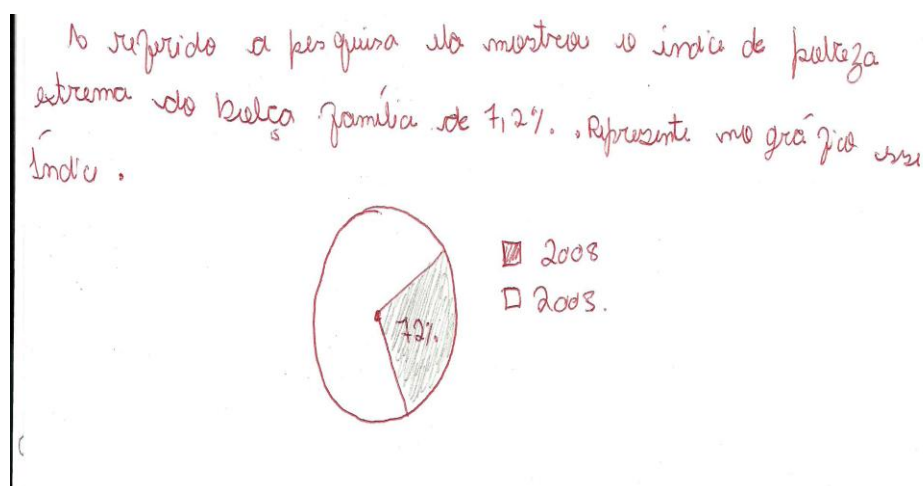 A referido a pesquisa ela mostrou o índice de pobreza
extrema do bolça família de 7,2%. Represente no gráfico esse
Índice.
72%
2008
2003.